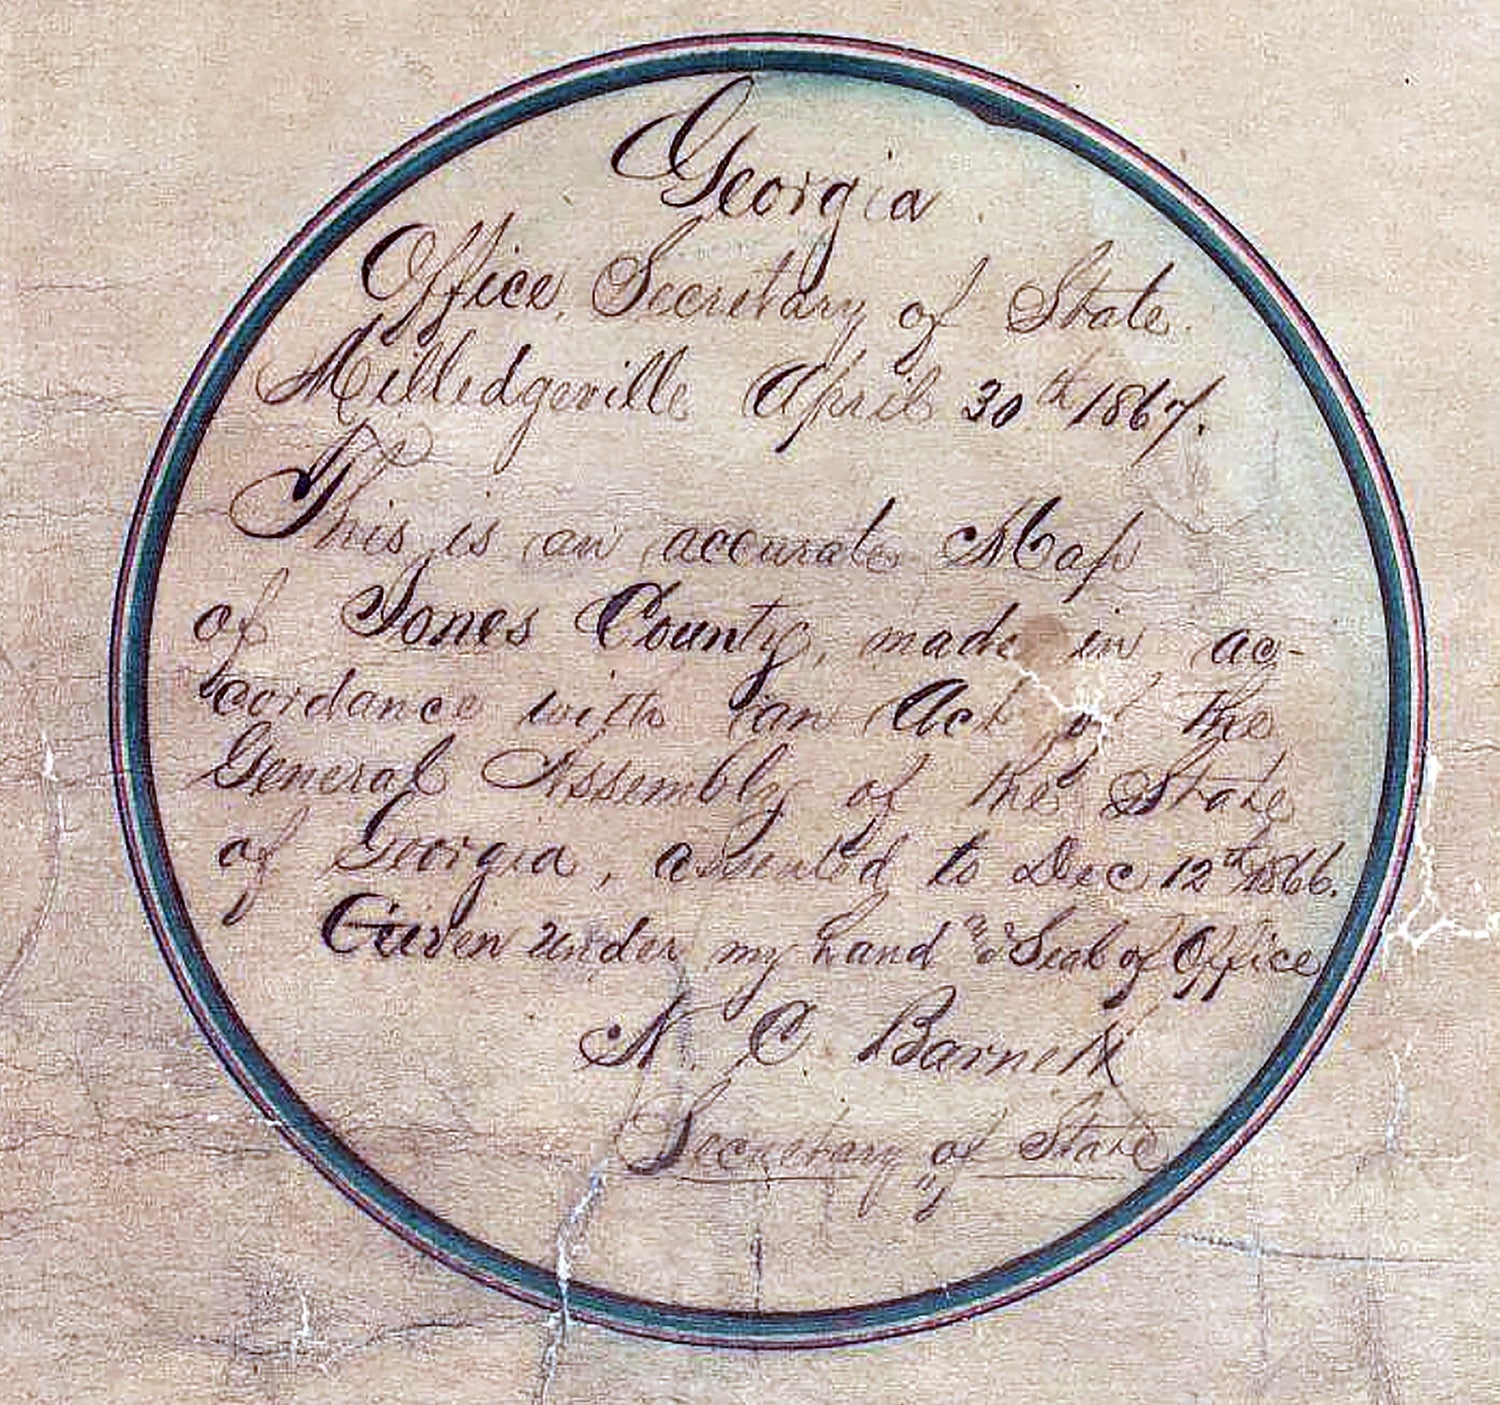 Georgia
Office, Secretary of State.
Milledgeville April 30th 1867.
This is an accurate Map
of Jones County, made in ac-
cordance with an Act of the
General Assembly of the State
of Georgia, assented to Dec 12th 1866.
Given under my hand & Seal of Office
N. C. Barnett
Secretary of State